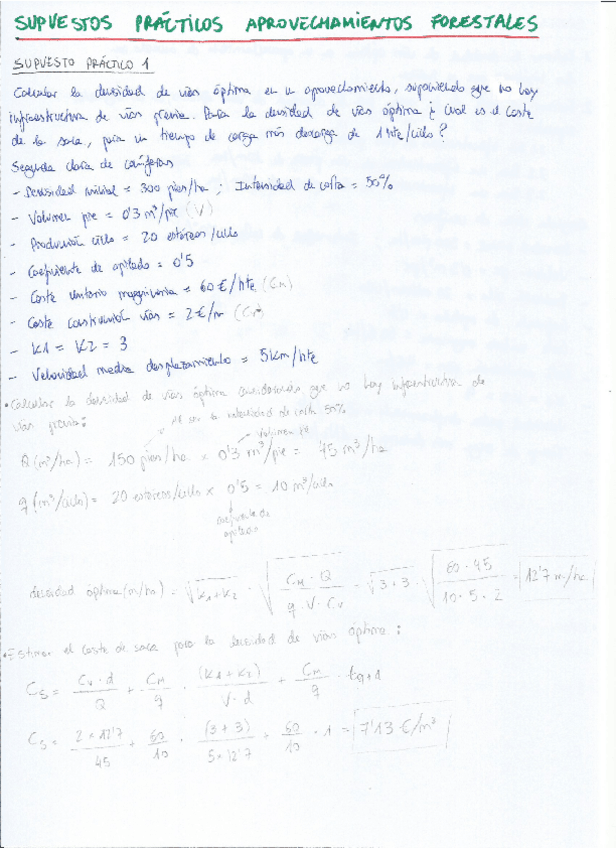 SUPUESTOS PRÁCTICOS APROVECHAMIENTOS FORESTALES
SUPUESTO PRÁCTICO 1
Calcular la densidad de vías óptima en un aprovechamiento, suponiendo que no hay
infraestructura de vías previa. Para la densidad de vías óptima ¿cual es el coste
de la saca, para un tiempo de carga más descarga de 1 hte/ciclo?
Segunda clara de coníferas
- Densidad inicial = 300 pies/ha ; Intensidad de corta = 50%
- Volumen pie = 0'3 m³/pie (V)
- Producción ciclo = 20 estéreos/ciclo
- Coeficiente de apilado = 0'5
- Coste unitario maquinaria = 60€/hte (Cm)
- Coste construcción vías = 2€/m (Cv)
- K1 = K2 = 3
- Velocidad media desplazamiento = 5 Km/hte
• Calcular la densidad de vías óptima considerando que no hay infraestructura de
vías previa:
50%
volumen pie
Q (m³/ha) = 150 pies/ha x 0'3 m³/pie = 45 m³/ha
q (m³/ciclo) = 20 estéreos/ciclo x 0'5 = 10 m³/ciclo
coeficiente de
apilado
densidad óptima (m/ha) = √K1+K2 · √(CM · Q / q · V · Cv) = √3+3 · √(60 · 45 / 10 · 5 · 2) = 12'7 m/ha
• Estimar el coste de saca para la densidad de vías óptima:
Cs = Cv · d / Q + CM / q · (K1 + K2) / V · d + CM / q · tc+d
Cs = 2 x 12'7 / 45 + 60 / 10 · (3 + 3) / 5 x 12'7 + 60 / 10 · 1 = 7'13 €/m³